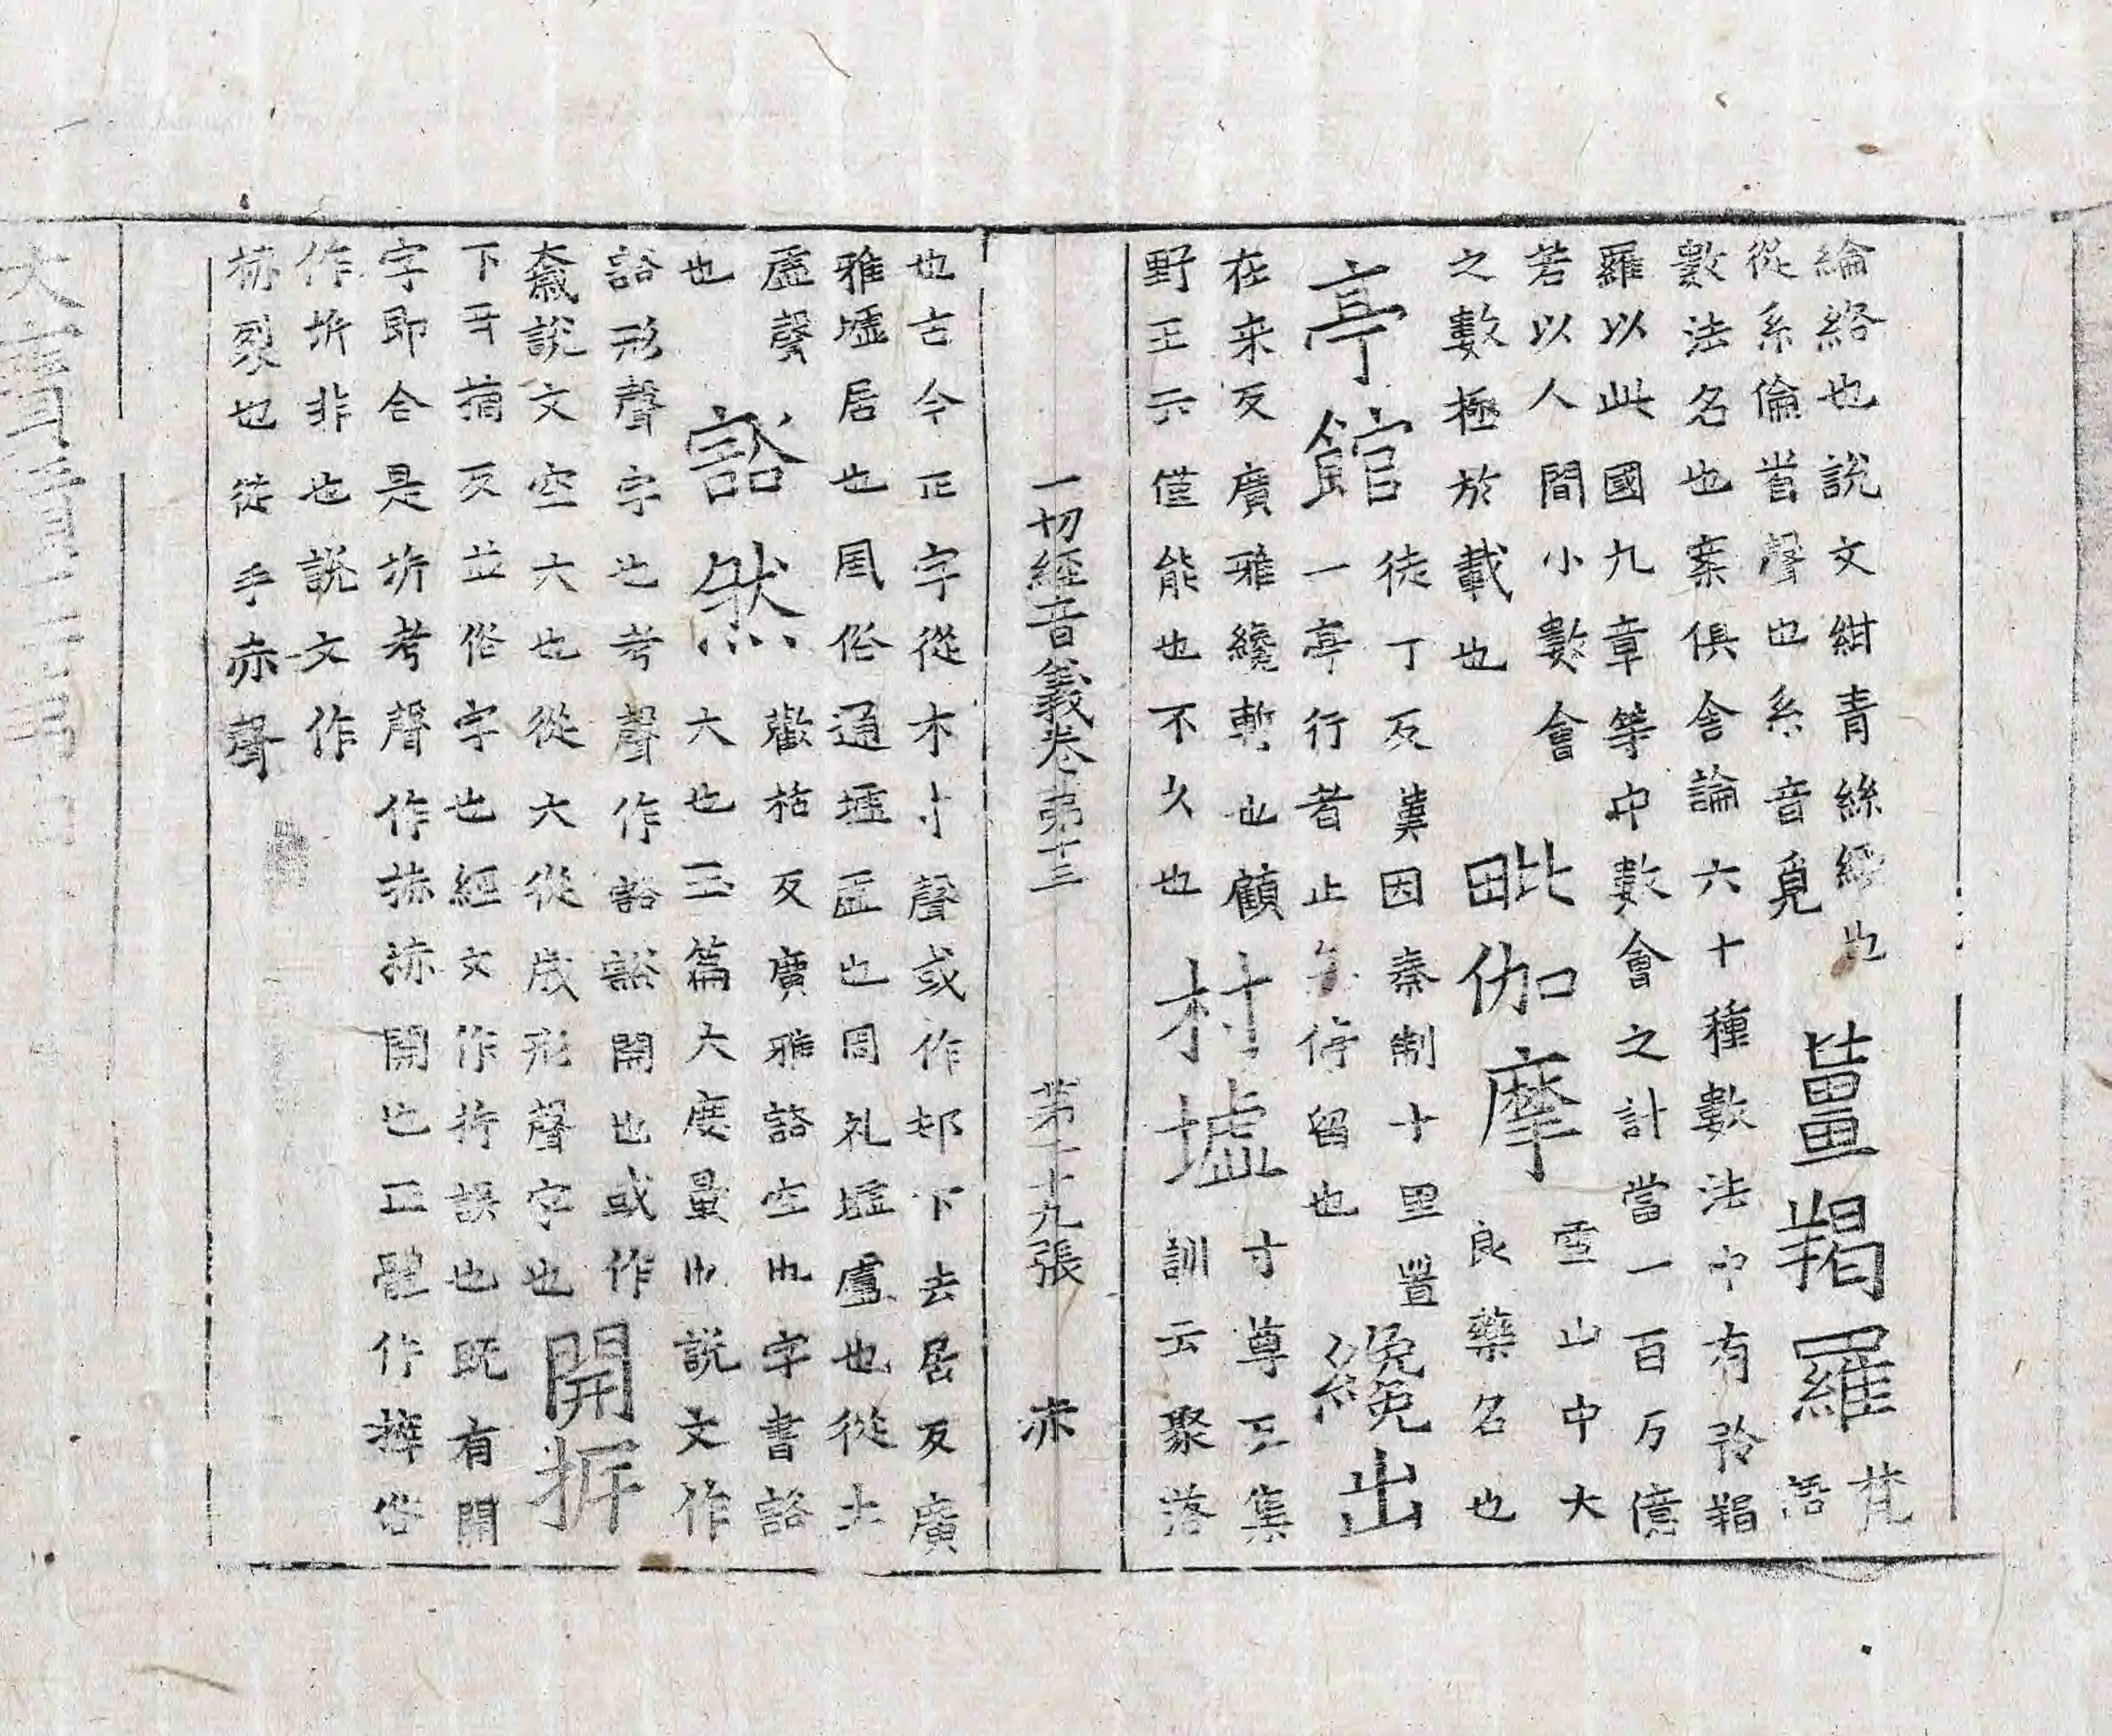 綸絡也說文紺青絲綬也
從糸侖聲也糸音覓
薑羯羅
梵
語
數法名也案俱舍論六十種數法中有矜羯
羅以此國九章等中數會之計當一百万億
若以人間小數會
之數極於載也
毗伽摩
雪山中大
良藥名也
亭館
徒丁反漢因秦制十里置
一亭行者止停留也
纔出
在来反廣雅纔暫也顧
野王云僅能也不久也
村墟
寸尊反集
訓云聚落
一切經音義卷第十三 第二十九張 赤
也古今正字從木寸聲或作邨下去居反廣
雅墟居也風俗通墟虛也周礼墟廬也從土
虛聲
也
谽然
歡枯反廣雅谽空也字書谽
大也玉篇大度量也說文作
谽形聲字也考聲作豁谽開也或作
奯說文空大也從大從歲形聲字也
開拆
下丑摘反並俗字也經文作拆誤也既有開
字即合是坼考聲作捇捇開也正體作㩹俗
作坼非也說文作
捇裂也從手赤聲